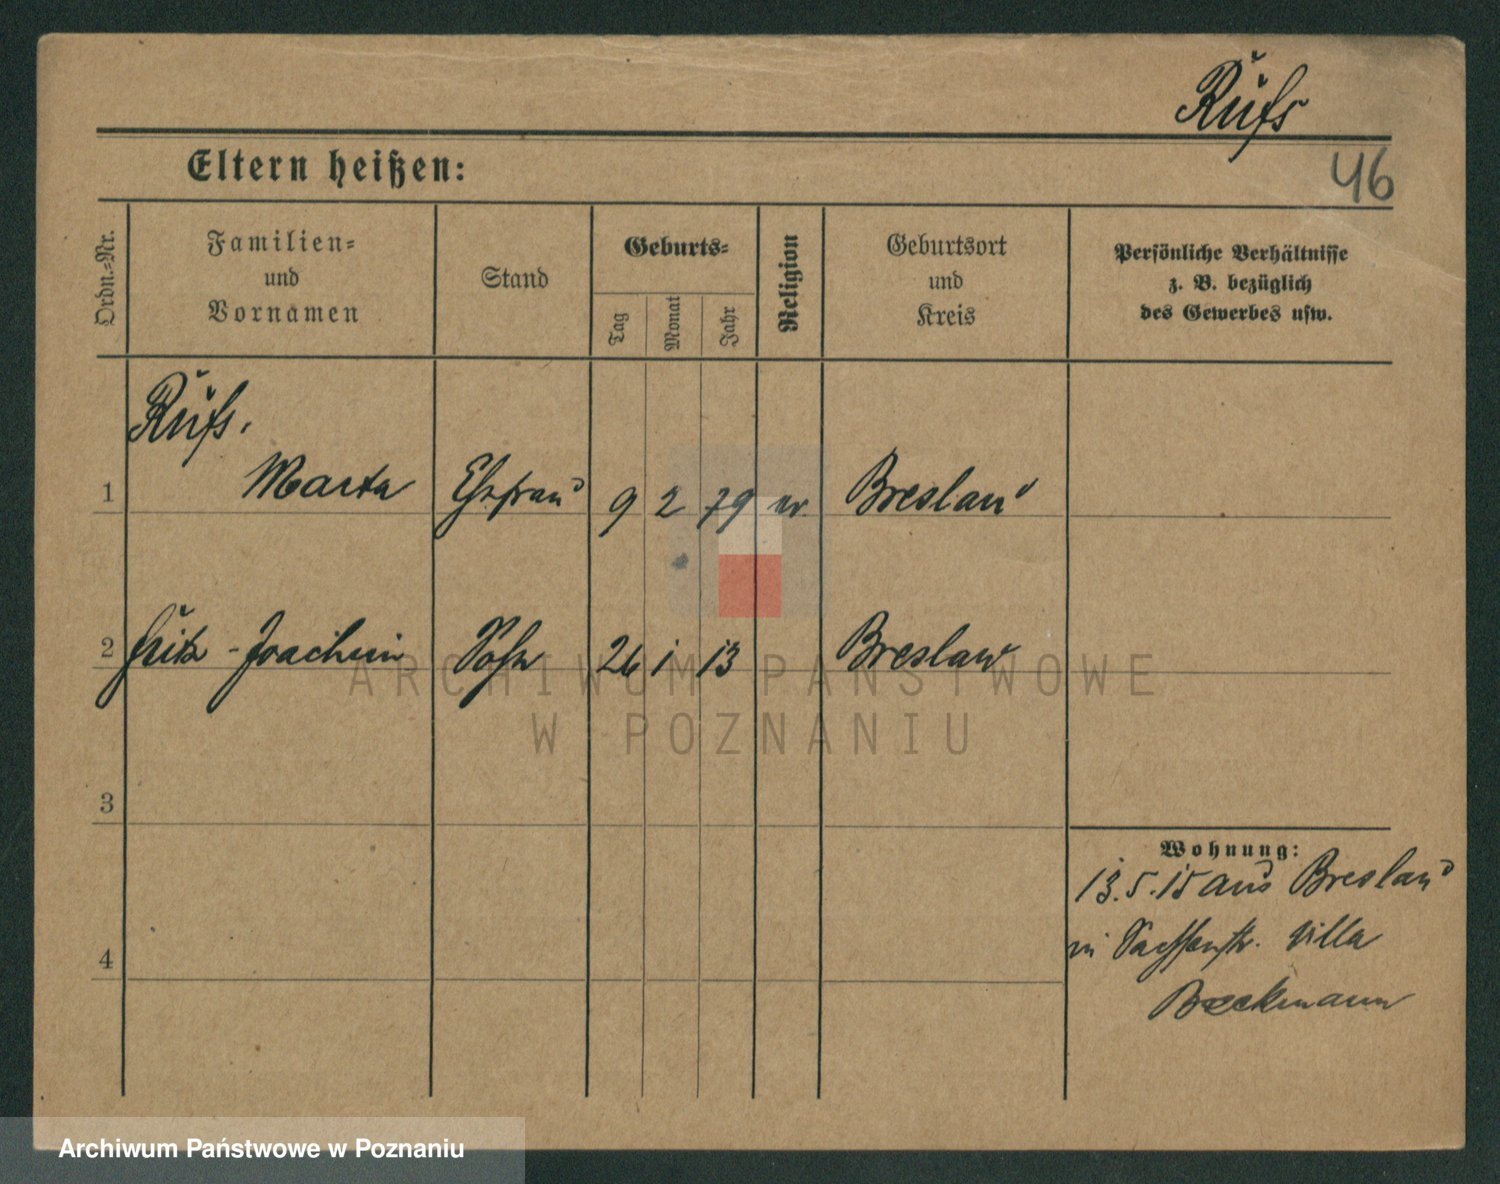 Rufs
46
Eltern heißen:
Ordn.-Nr.
Familien-
und
Vornamen
Stand
Geburts-
Tag
Monat
Jahr
Religion
Geburtsort
und
Kreis
Persönliche Verhältnisse
z. B. bezüglich
des Gewerbes usw.
Rufs.
1 Marta Ehefrau 9 2 79 ev. Breslau
2 Fritz-Joachim Sohn 26 1 13 Breslau
3
4
Wohnung:
13.5.15 aus Breslau
in Sachsenstr. Villa
Beckmann
ARCHIWUM PAŃSTWOWE
W POZNANIU
Archiwum Państwowe w Poznaniu